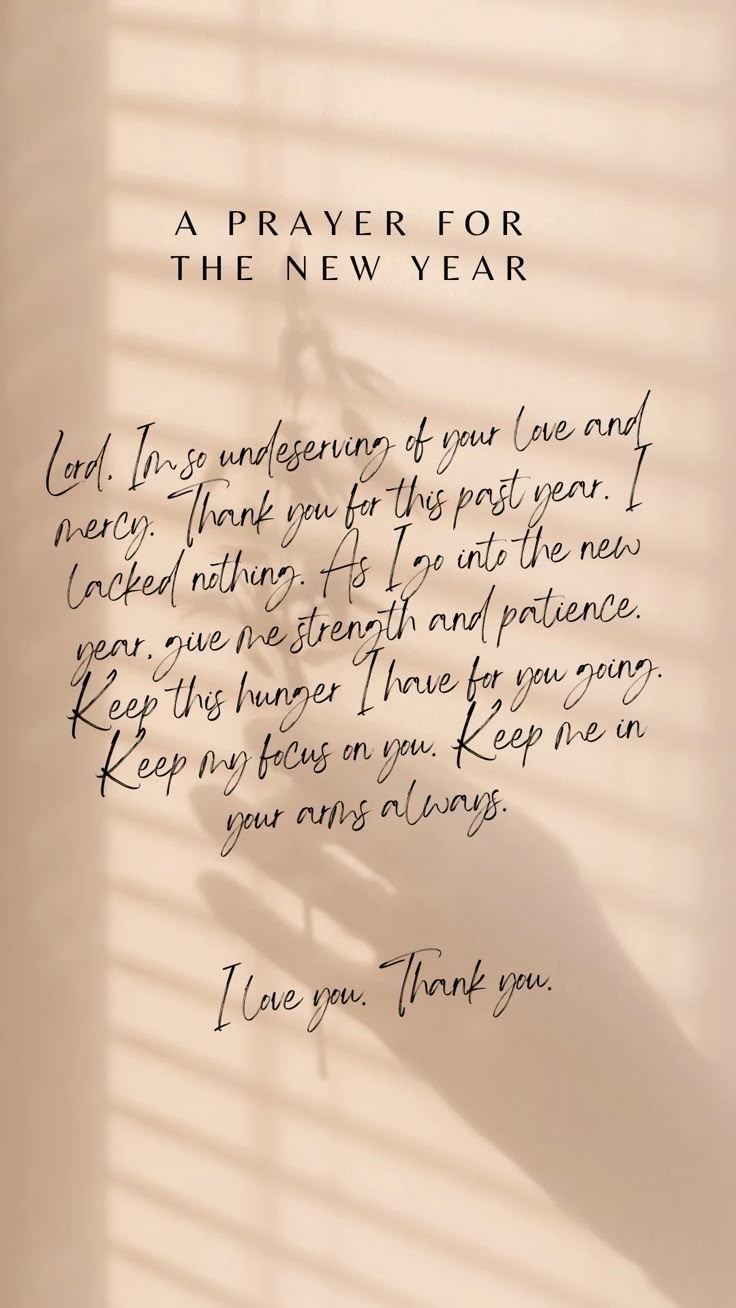 A PRAYER FOR
THE NEW YEAR
Lord, Im so undeserving of your love and
mercy. Thank you for this past year. I
lacked nothing. As I go into the new
year, give me strength and patience.
Keep this hunger I have for you going.
Keep my focus on you. Keep me in
your arms always.
I love you. Thank you.